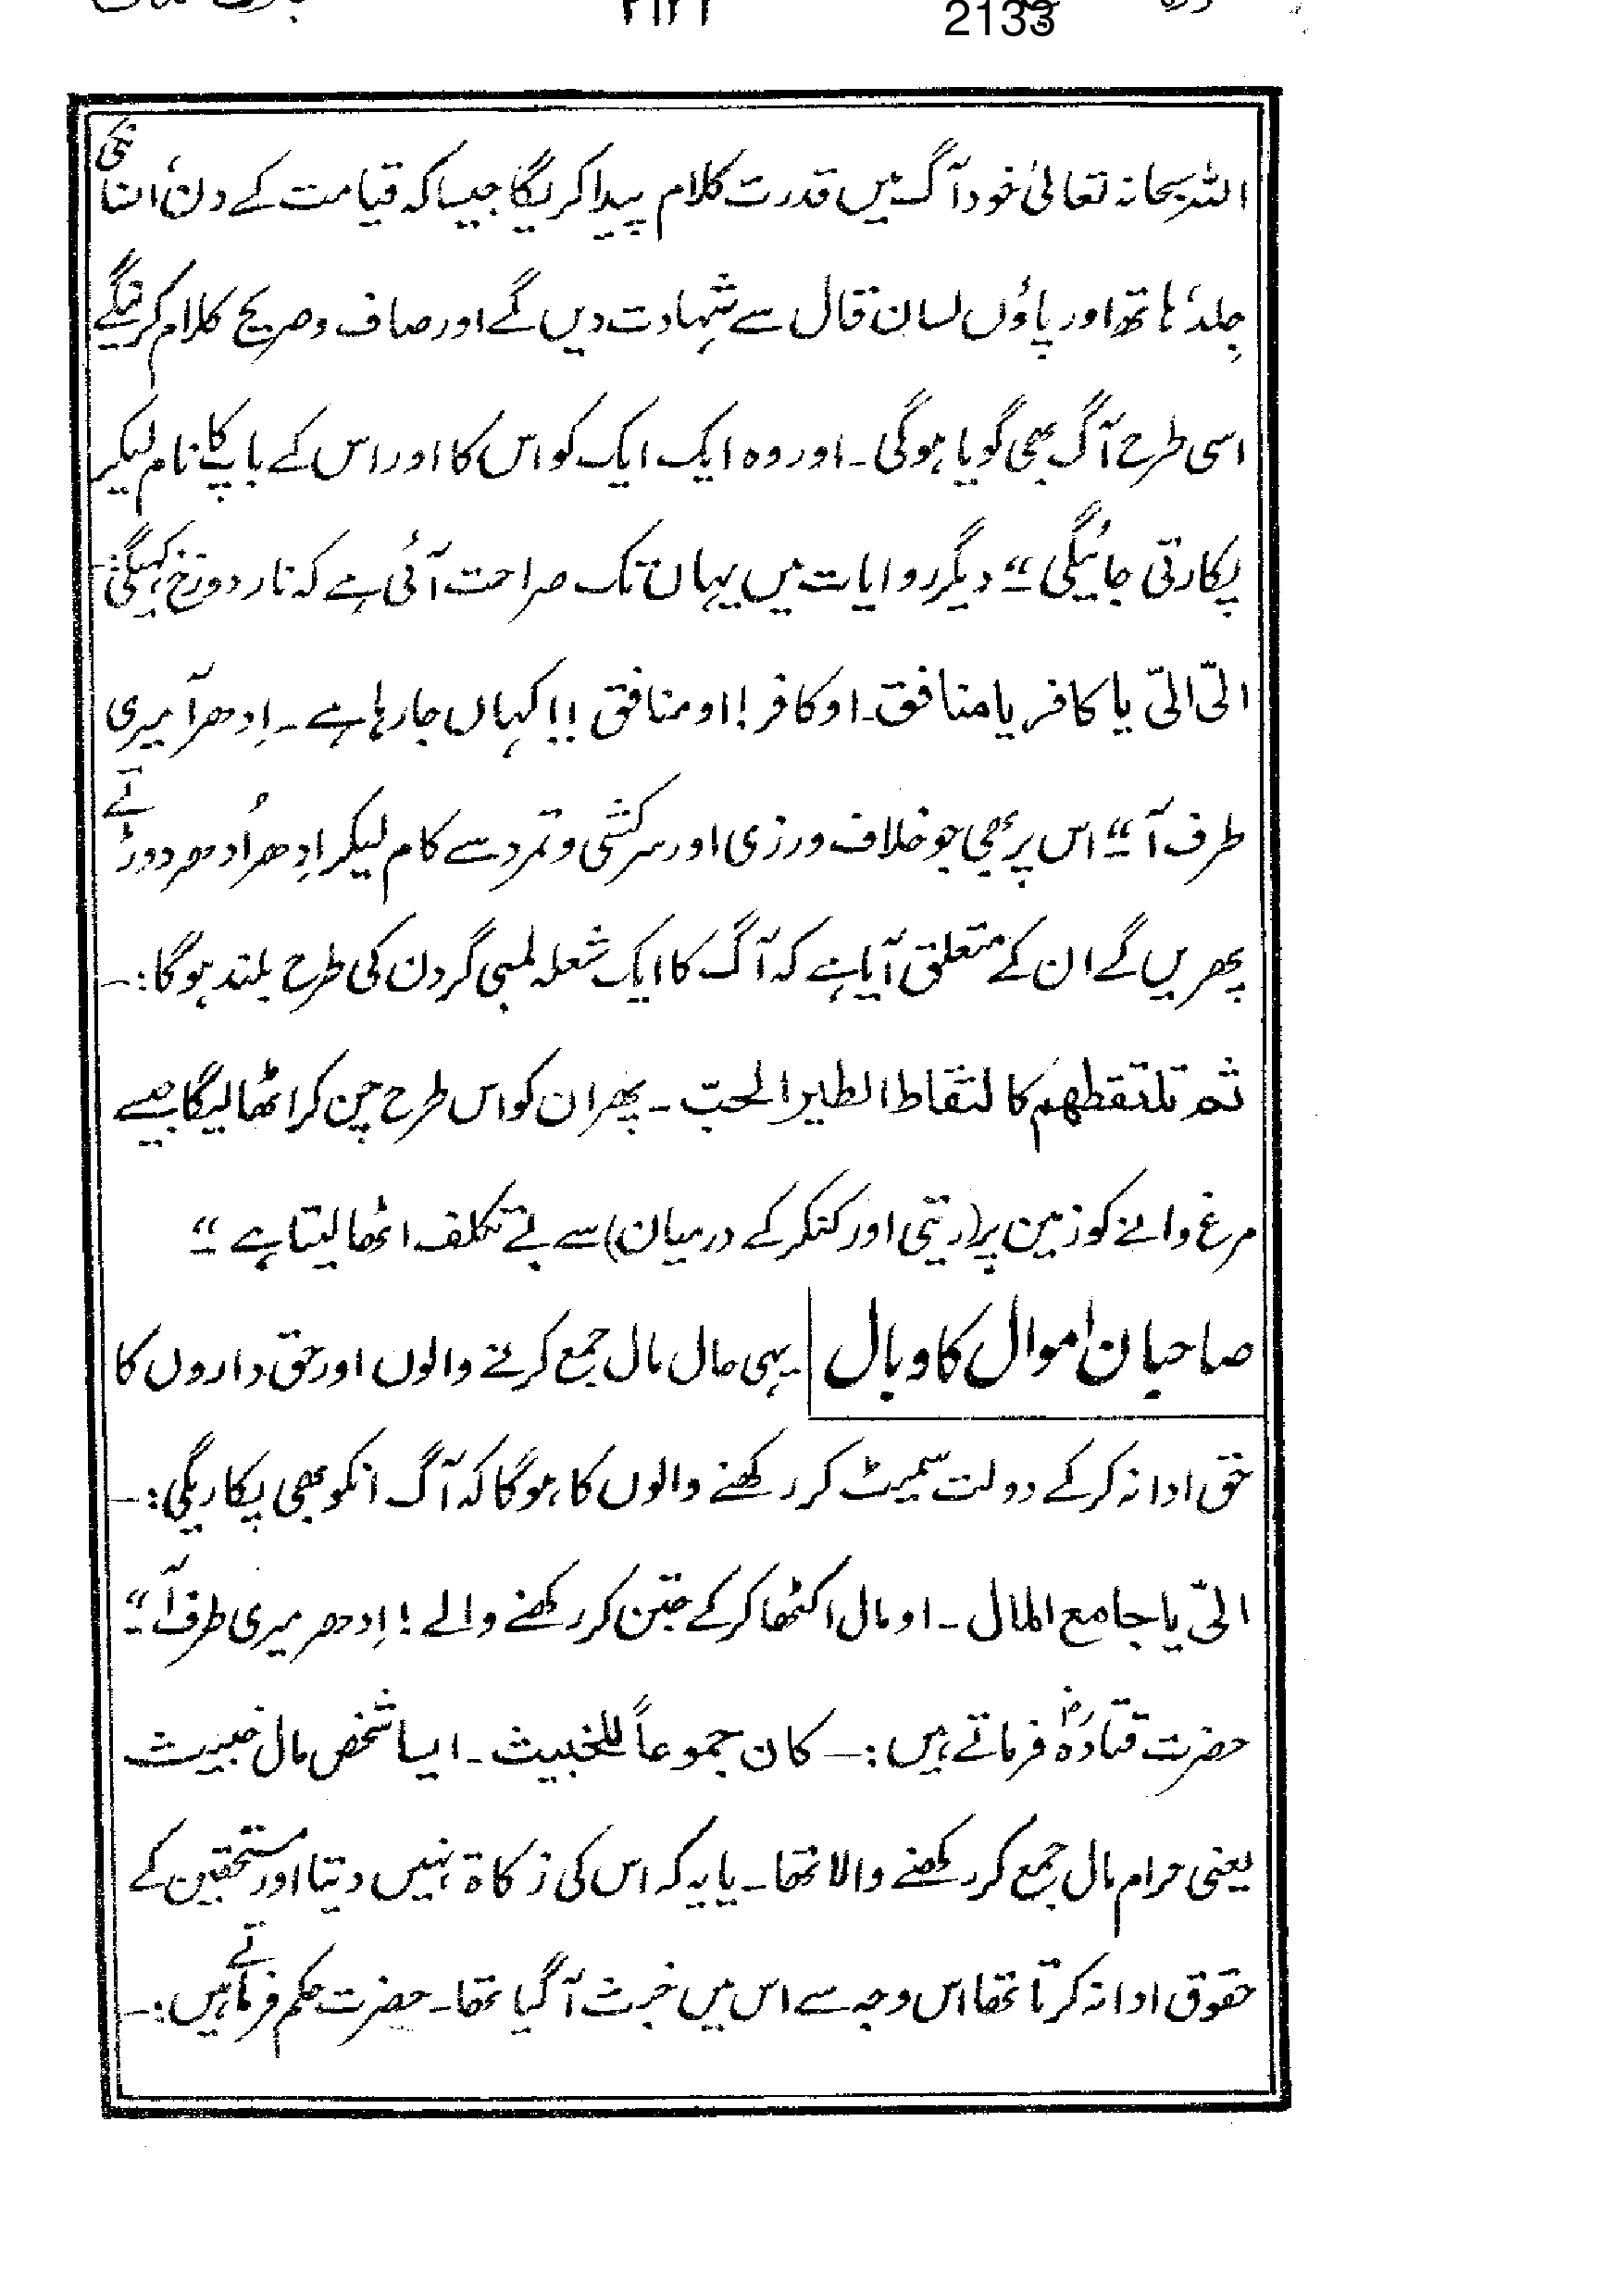 2133
اللہ سبحانہ تعالیٰ خود آگ میں قدرت کلام پیدا کریگا جیسا کہ قیامت کے دن، انسان کی
جلد، ہاتھ اور پاؤں لسان قال سے شہادت دیں گے اور صاف وصریح کلام کرینگے
اسی طرح آگ بھی گویا ہوگی ۔ اور وہ ایک ایک کو اس کا اور اس کے باپ کا نام لیکر
پکارتی جائیگی“ دیگر روایات میں یہاں تک صراحت آئی ہے کہ نار دوزخ کہیگی :۔
الیّ الیّ یا کافر یا منافق۔ او کافر! او منافق!! کہاں جا رہا ہے ۔ اِدھر آ میری
طرف آ“ اس پر بھی جو خلاف ورزی اور سرکشی و تمرد سے کام لیکر اِدھر اُدھر دوڑتے
پھریں گے ان کے متعلق آیا ہے کہ آگ کا ایک شعلہ لمبی گردن کی طرح بلند ہوگا :۔
ثم تلتقطهم کالتقاط الطیر الحبّ ۔ پھر ان کو اس طرح چن کر اٹھا لیگا جیسے
مرغ دانے کو زمین پر (ریتی اور کنکر کے درمیان) سے بے تکلف اٹھا لیتا ہے“
صاحبان اموال کا وبال یہی حال مال جمع کرنے والوں اور حق داروں کا
حق ادا نہ کرکے دولت سمیٹ کر رکھنے والوں کا ہوگا کہ آگ انکو بھی پکاریگی :۔
الیّ یا جامع المال ۔ او مال اکٹھا کرکے جتن کر رکھنے والے! اِدھر میری طرف آ“
حضرت قتادہؓ فرماتے ہیں :۔ کان جموعاً للخبیث ۔ ایسا شخص مال خبیث
یعنی حرام مال جمع کر رکھنے والا تھا ۔ یا یہ کہ اس کی زکاۃ نہیں دیتا اور مستحقین کے
حقوق ادا نہ کرتا تھا اس وجہ سے اس میں خبث آگیا تھا ۔ حضرت حکم فرماتے ہیں :۔